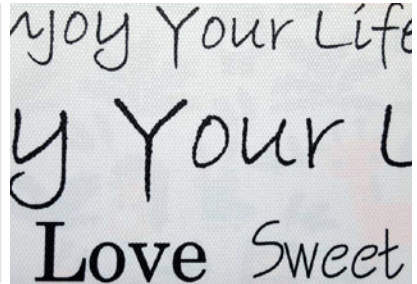 njoy Your Life
y Your L
Love Sweet